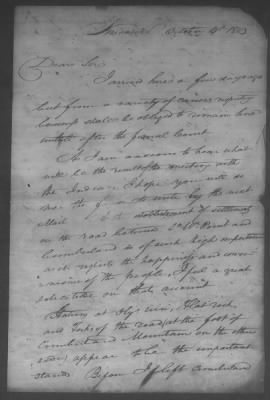 October 4th 1803
Dear Sir
I arrived here a few days ago
but from a variety of causes
I shall be obliged to remain here
untill after the federal Court
As I am anxious to hear what
will be the result of the meeting with
the Indians I hope you will do
me the to write by the next
Mail establishment of
on the road between So. Wt. Point and
Cumberland is of such high importance
with respect to the happiness and
of the people, I feel a great
solicitude on that account
Stations at river, Flat rock
and Forks of the road (at the foot of
Cumberland Mountain on the other
side) appear to be the important
stands Before I left Cumberland